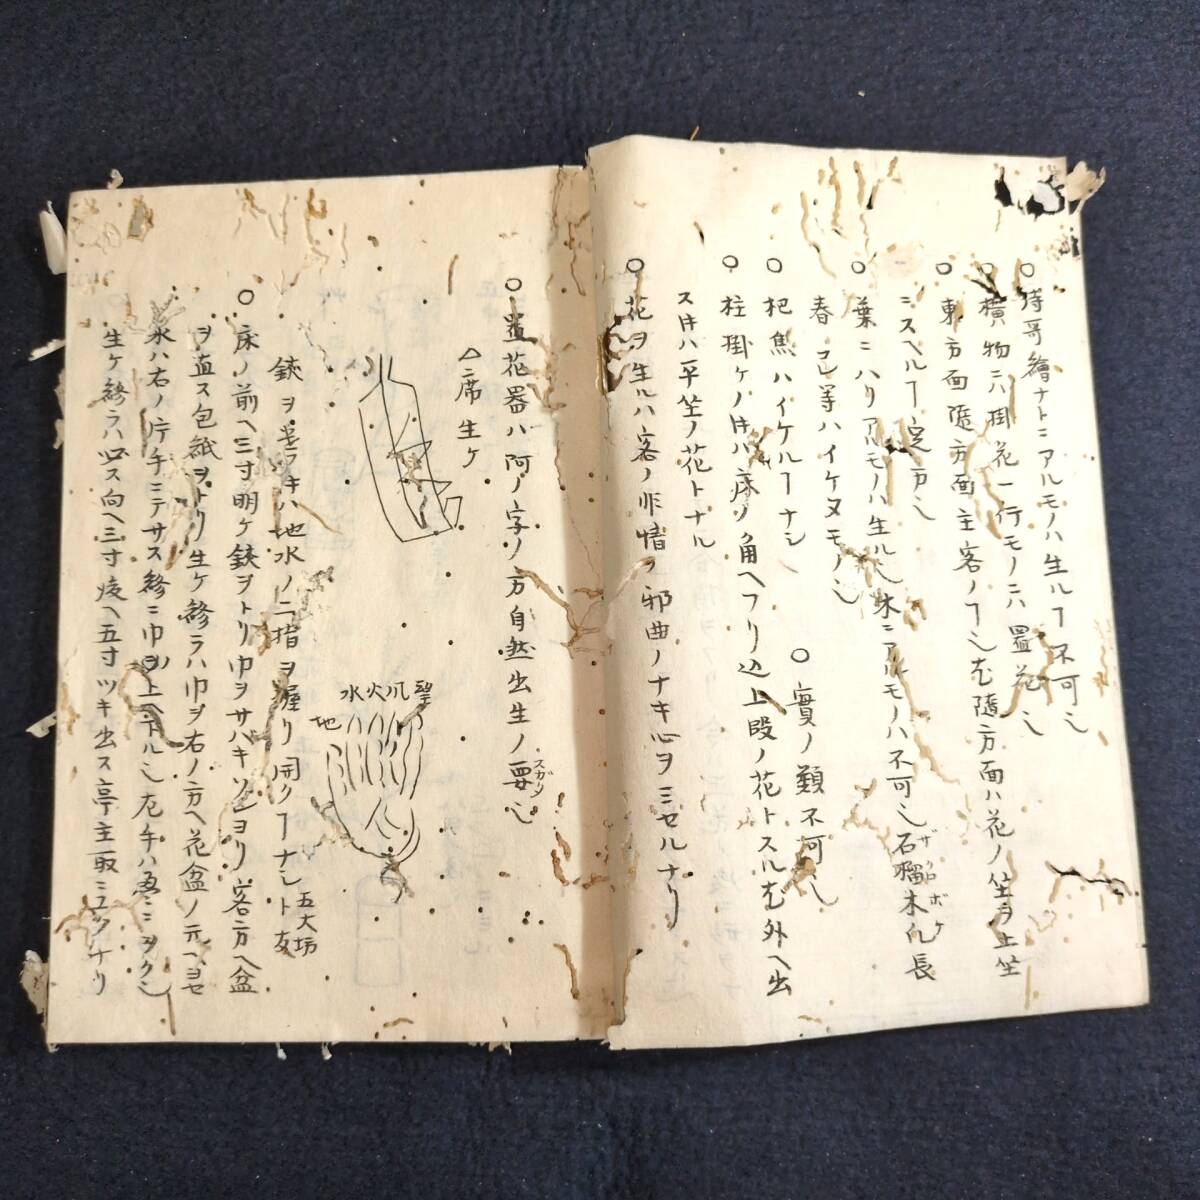 ○詩哥繪ナトニアルモノハ生ルヿ不可乄
○横物ニハ掛花一行モノニハ置花乄
○東方面随方面主客ノヿ乄𪜈随方面ハ花ノ坐ヲ上坐
ニスヘルヿ定方乄
○葉ニハリアルモノハ生ル乄木ニアルモノハ不可乄石榴ザクロ木瓜ボケ長
春コレ等ハイケヌモノ乄
○芭焦ハイケルヿナシ ○實ノ類不可乄
○柱掛ケノ𪜈ハ床ノ角ヘフリ込上段ノ花トスル𪜈外ヘ出
ス𪜈ハ平坐ノ花トナル
○花ヲ生ルハ客ノ非情ノ邪曲ノナキ心ヲミセルナリ
○置花器ハ阿ノ字ノ方自然出生ノ要スガタ乄
△席生ケ
地 水火風空
鋏ヲ 地水ノ二指ヲ握リ開クヿナシト 五大坊 友
○床ノ前ヘ三寸明ケ鋏ヲトリ巾ヲサバキソレヨリ客方ヘ盆
ヲ直ス包紙ヲトリ生ケ終ラハ巾ヲ右ノ方ヘ花盆ノ元ヘヨセ
水ハ右ノ片手ニテサス終ニ巾ヲ上ヘトル乄左手ハ ニヲク乄
生ケ終ラハ ス向ヘ三寸後ヘ五寸ツキ出ス亭主取ニユクナリ